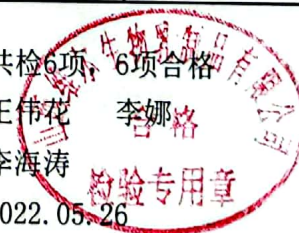 共检6项，6项合格
王伟花 李娜
李海涛
2022.05.26
合格
检验专用章